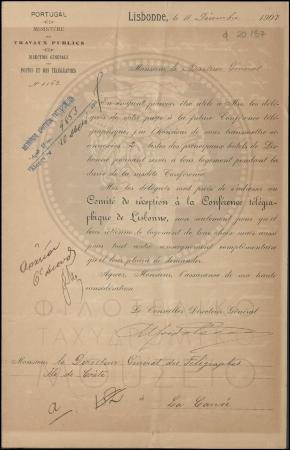 PORTUGAL
MINISTÈRE
DES
TRAVAUX PUBLICS
DIRECTION GÉNÉRALE
DES
POSTES ET DES TÉLÉGRAPHES
Lisbonne, le 11 Décembre 1907
20.157
Monsieur le Directeur Général
pouvoir être utile à Mrs les délé-
gués de votre pays à la future Conférence télé-
graphique, j'ai l'honneur de vous transmettre ci-
listes des principaux hôtels de Lis-
bonne pouvant servir à leur logement pendant la
durée de la susdite Conférence.
Mrs les délégués sont priés de s'adresser au
Comité de réception à la Conférence télégra-
phique de Lisbonne, non seulement pour qu'il
leur retienne le logement de leur choix mais aussi
pour tout autre renseignement complémentaire
qu'il leur plaira de demander.
Agréez, Monsieur, l'assurance de ma haute
considération.
Le Conseiller Directeur Général
Monsieur le Directeur Général des Télégraphes
de Crète
à La Canée